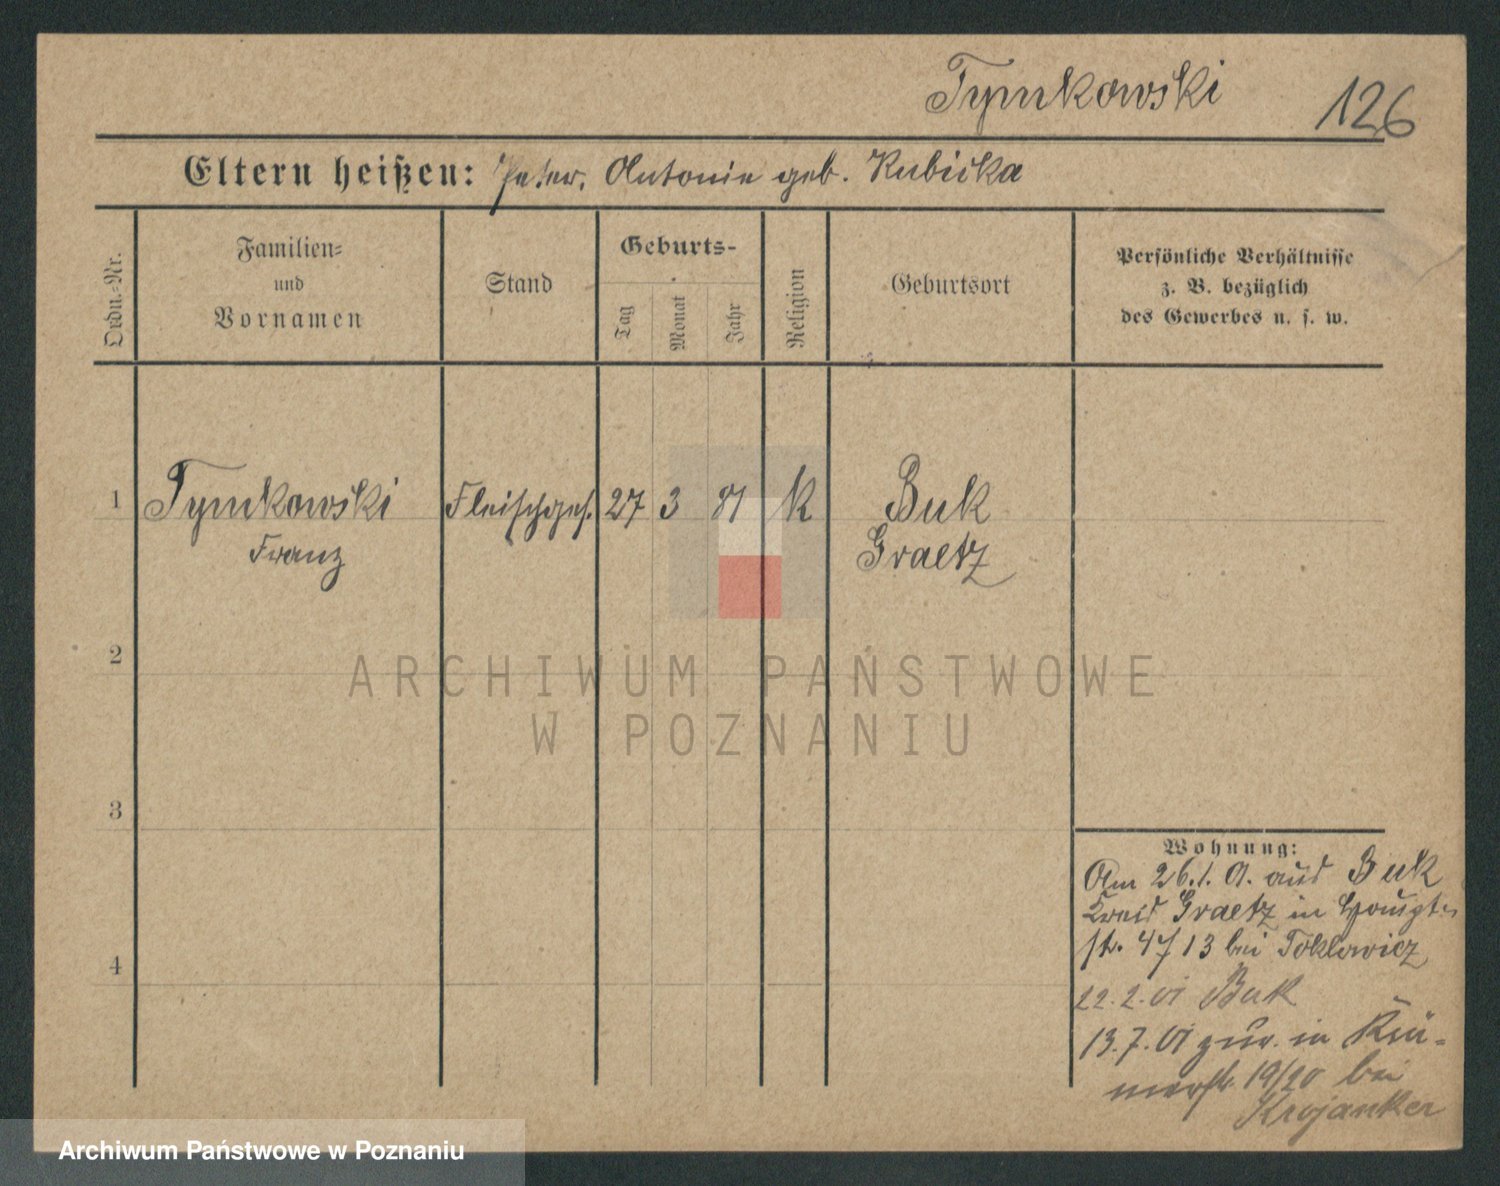 Tymkowski
126
Eltern heißen: Peter, Antonie geb. Kubicka
Ordn.-Nr.
Familien-
und
Vornamen
Stand
Geburts-
Tag
Monat
Jahr
Religion
Geburtsort
Persönliche Verhältnisse
z. B. bezüglich
des Gewerbes u. s. w.
1 Tymkowski Fleischges. 27 3 81 K Buk
Franz Graetz
2
ARCHIWUM PAŃSTWOWE
W POZNANIU
3
Wohnung:
Am 26.1. 01. aus Buk
Kreis Graetz in
str. 4/13 bei Toklowicz
4
22.2.01 Buk
13.7.01 zur. in Krä-
merstr. 19/20 bei
Krojanker
Archiwum Państwowe w Poznaniu